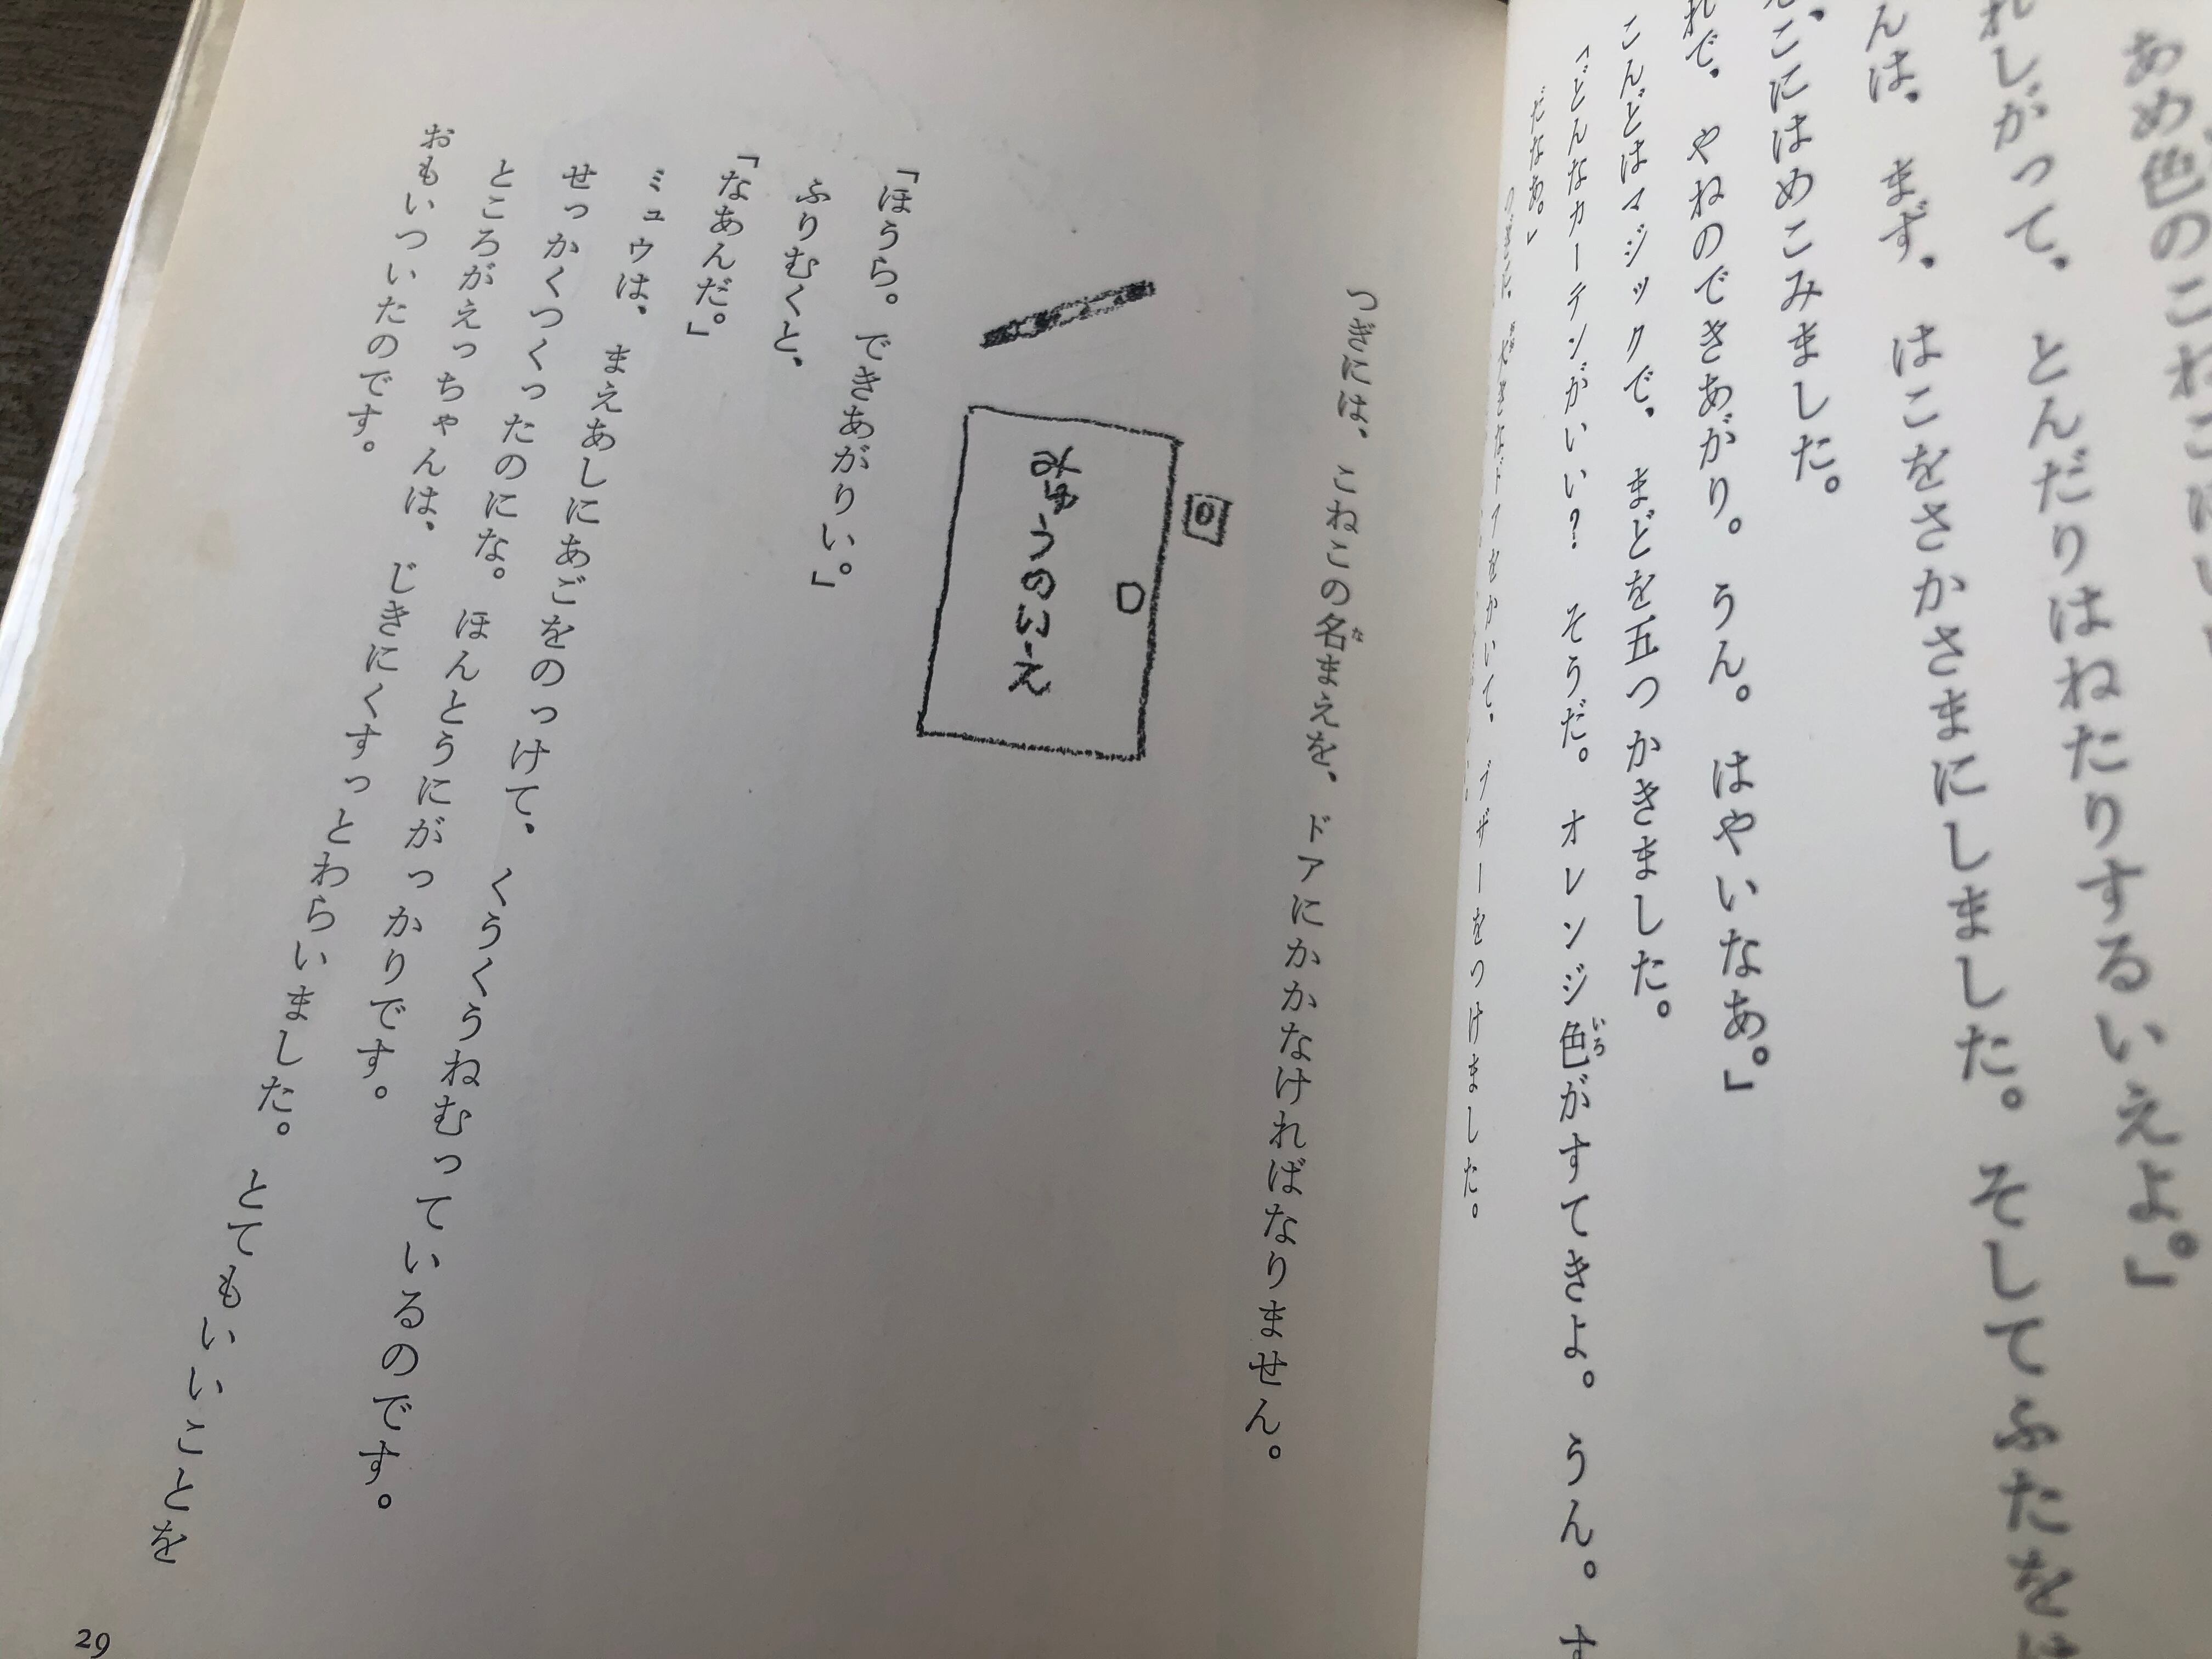 あめ色のこねこ
れしがって、とんだりはねたりするいえよ。」
んは、まず、はこをさかさまにしました。そしてふたを
こにはめこみました。
れで、やねのできあがり。うん。はやいなあ。」
こんどはマジックで、まどを五つかきました。
「どんなカーテンがいい？　そうだ。オレンジ色がすてきよ。うん。す
だなあ。」
大きなドアをかいて、ブザーをつけました。
つぎには、こねこの名まえを、ドアにかかなければなりません。
みゅうのいえ
「ほうら。できあがりい。」
ふりむくと、
「なあんだ。」
ミュウは、まえあしにあごをのっけて、くうくうねむっているのです。
せっかくつくったのにな。ほんとうにがっかりです。
ところがえっちゃんは、じきにくすっとわらいました。とてもいいことを
おもいついたのです。
29